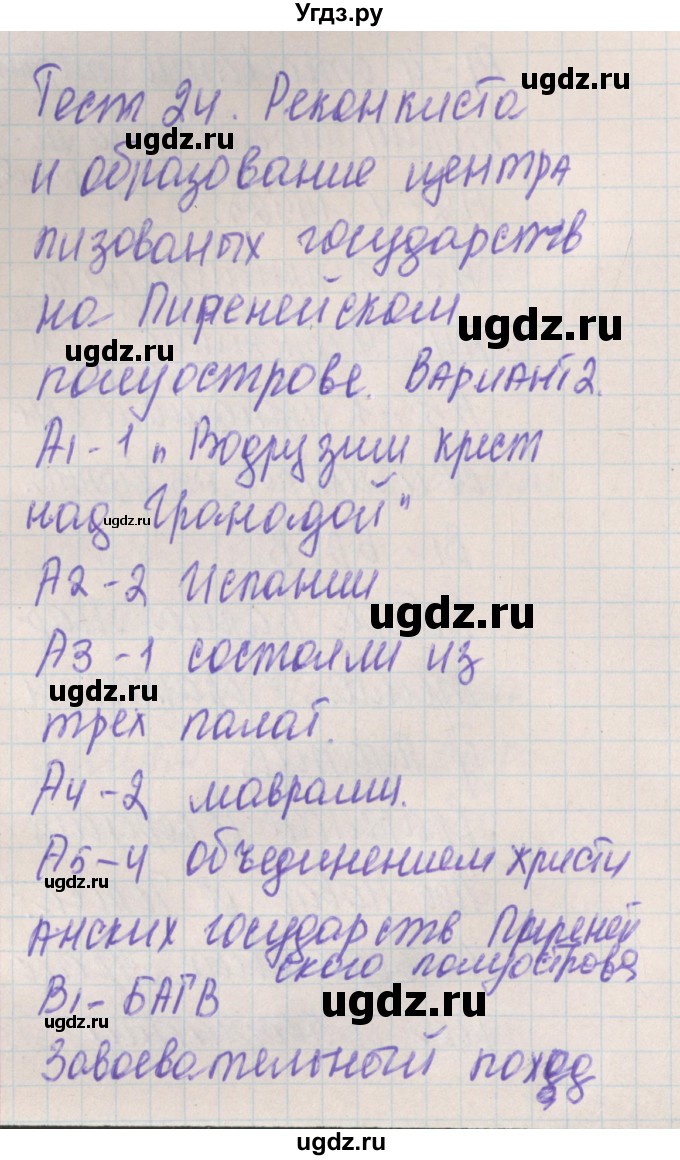 Угдз.ру
Тест 24. Реконкиста
ugdz.ru
ugdz.ru
и образование центра
лизованых государств
на Пиренейском
ugdz.ru
ugdz.ru
полуострове. Вариант 2.
А1-1 „Водрузим крест
над Гранадой"
ugdz.ru
А2-2 Испании
ugdz.ru
А3-1 состояли из
ugdz.ru
трех палат.
А4-2 маврами.
А5-4 объединением христи
ugdz.ru
анских государств Пиреней
ского полуострова
В1- БАГВ
ugdz.ru
ugdz.ru
Завоевательный поход
ugdz.ru